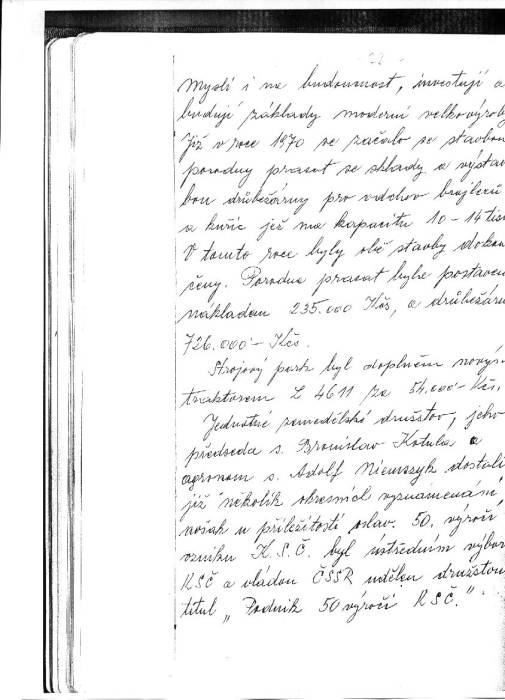 Myslí i na budoucnost, investují a
budují základy moderní velkovýroby
Již v roce 1970 se začalo se stavbou
porodny prasat se sklady a výstav
bou drůbežárny pro odchov brojlerů
a kuřic jež ma kapacitu 10 - 14 tisí
V tomto roce byly obě stavby dokon
čeny. Porodna prasat byla postavena
nákladem 235.000 Kčs, a drůbežárn
726.000 - Kčs.
Strojový park byl doplněn novým
traktorem Z 4611 za 54.000 - Kčs.
Jednotné zemědělské družstvo, jeho
předseda s. Bronislav Kotula a
agronom s. Adolf Niemszyk dostali
již několik okresních vyznamenání
však u příležitosti oslav. 50. výročí
vzniku K.S.Č. byl ústředním výbor
KSČ a vládou ČSSR udělen družstvu
titul „Podnik 50 výročí KSČ."